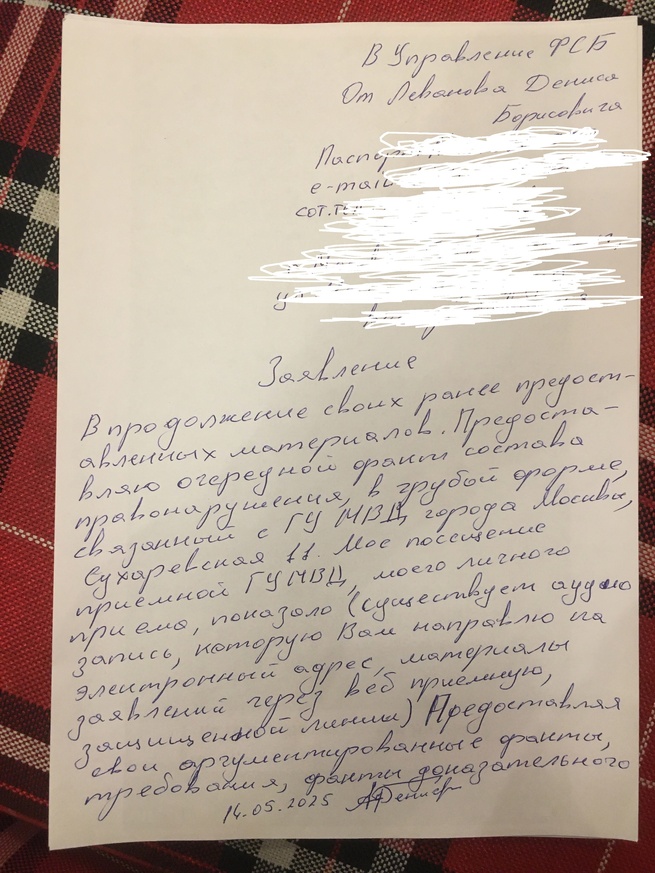 В Управление ФСБ
От Леванова Дениса
Борисовича
e-mail
сот.
Заявление
В продолжение своих ранее предост-
авленных материалов. Предоста-
вляю очередной факт состава
правонарушения, в грубой форме,
связанный с ГУ МВД города Москвы,
Сухаревская 11. Мое посещение
приемной ГУ МВД, моего личного
приема, показало (существует аудио
запись, которую Вам направлю на
электронный адрес, материалы
заявлений через веб приемную,
защищенной линии) Предоставляя
свои аргументированные факты,
требования, факты доказательного
14.05.2025